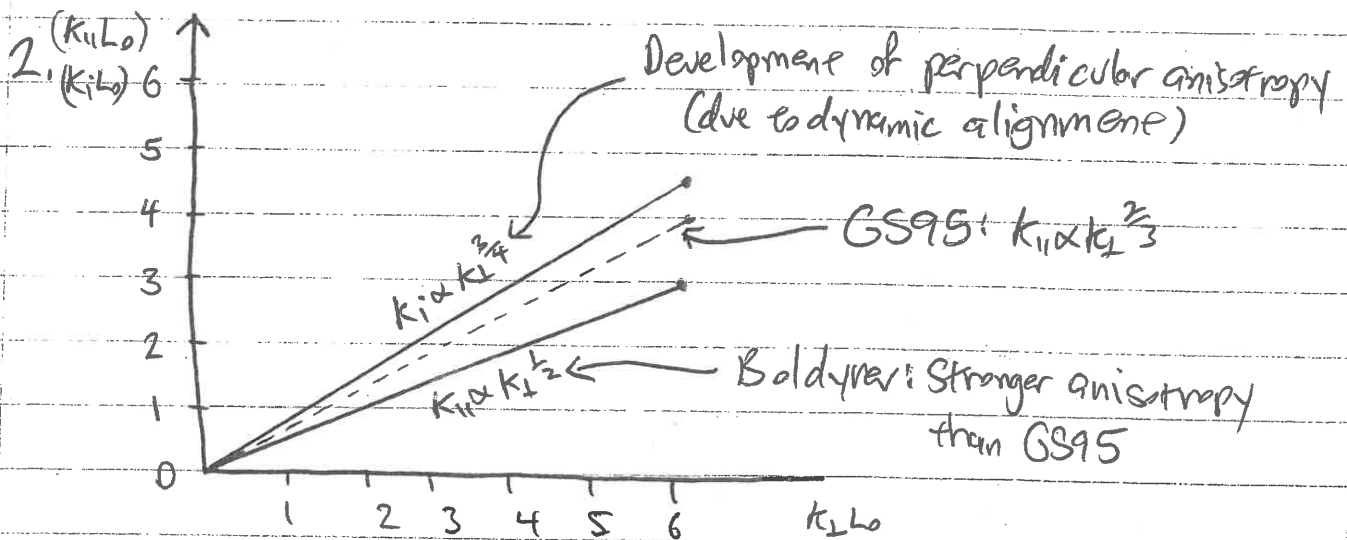 2.
(k₁₁L₀)
(kᵢL₀)
6
5
4
3
2
1
0
1 2 3 4 5 6
k⊥L₀
Development of perpendicular anisotropy
(due to dynamic alignment)
kᵢ ∝ k⊥^3/4
GS95: k₁₁ ∝ k⊥^2/3
k₁₁ ∝ k⊥^1/2
Boldyrev: Stronger anisotropy
than GS95